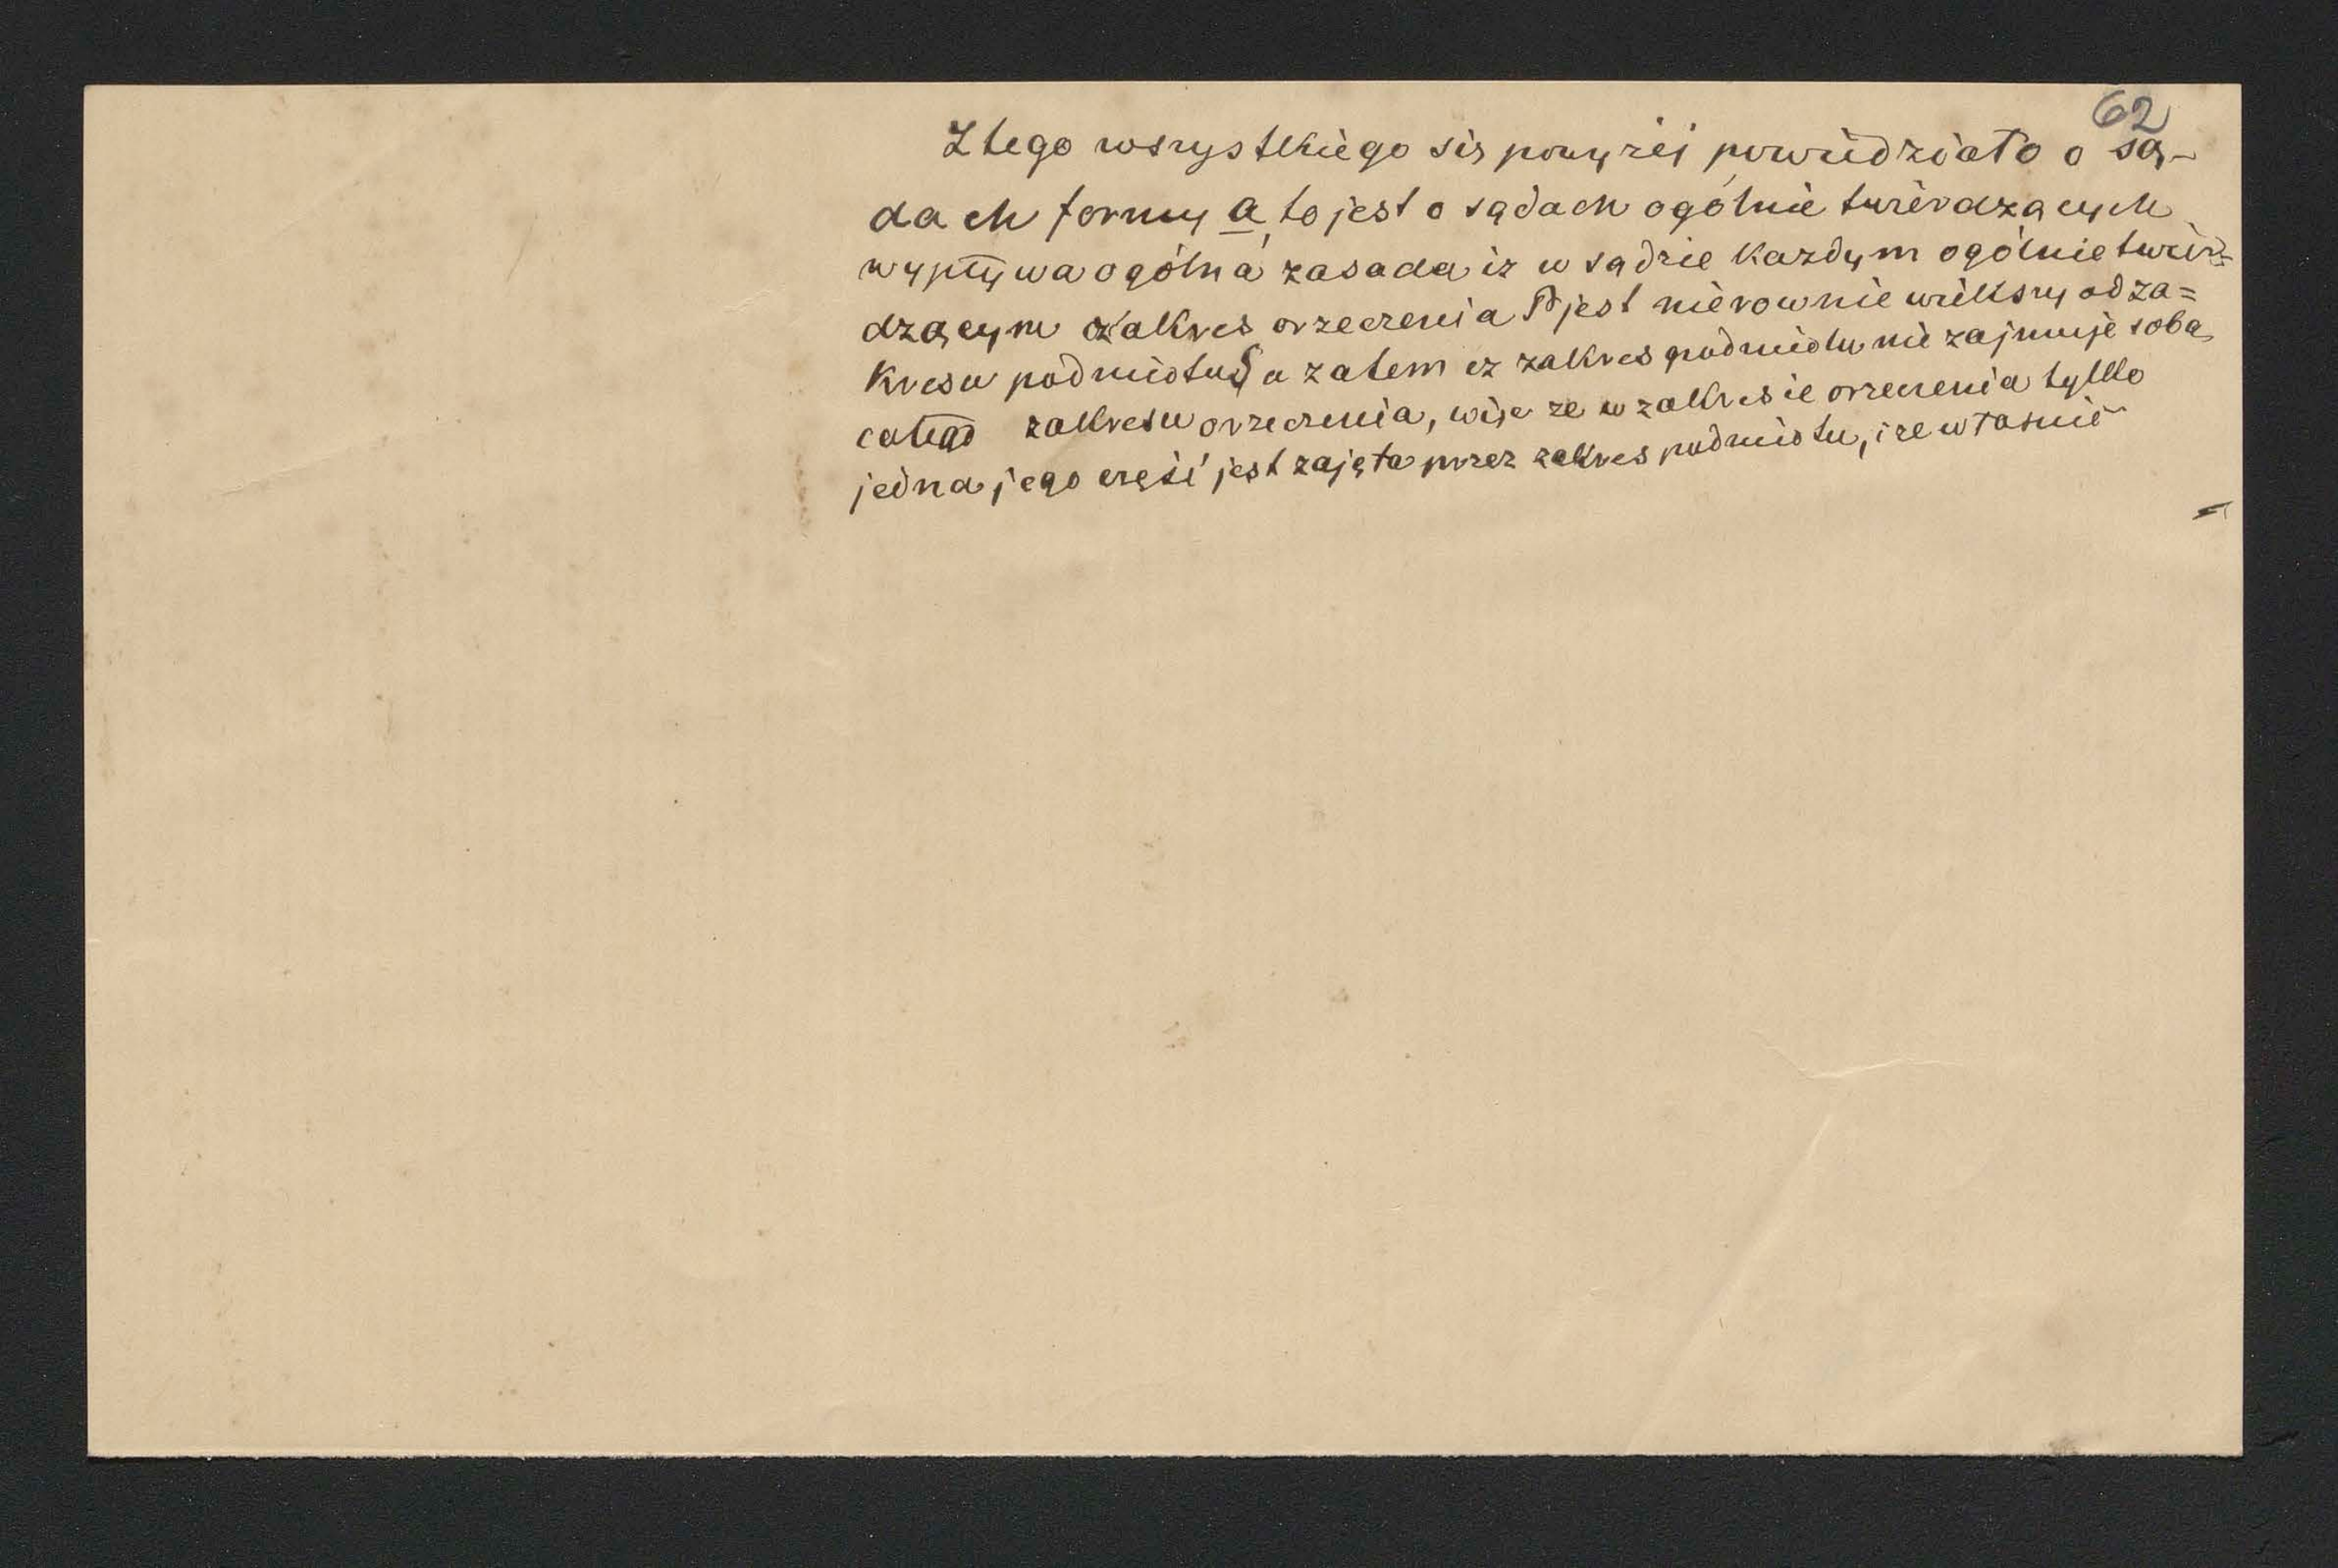 62
Z tego wszystkiego się powyżej powiedziało o są-
dach formy a, to jest o sądach ogólnie twierdzących
wypływa ogólna zasada iż w sądzie każdym ogólnie twier=
dzącym zakres orzeczenia P jest nierownie wiekszy od za=
kresu podmiotu S a zatem iz zakres podmiotu nie zajmuje sobą
całego zakresu orzeczenia, więc ze w zakresie orzeczenia tylko
jedna jego część jest zajęta przez zakres podmiotu, i ze własnie